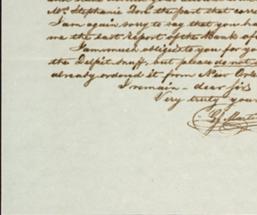 Mr. Stephanie for the part that
I am again sorry to say that you ha
me the last report of the Bank of
I am much obliged to you for yo
the Delpit snuff, but please do not
already ordered it from New Orle
I remain - dear Sir
Very truly your